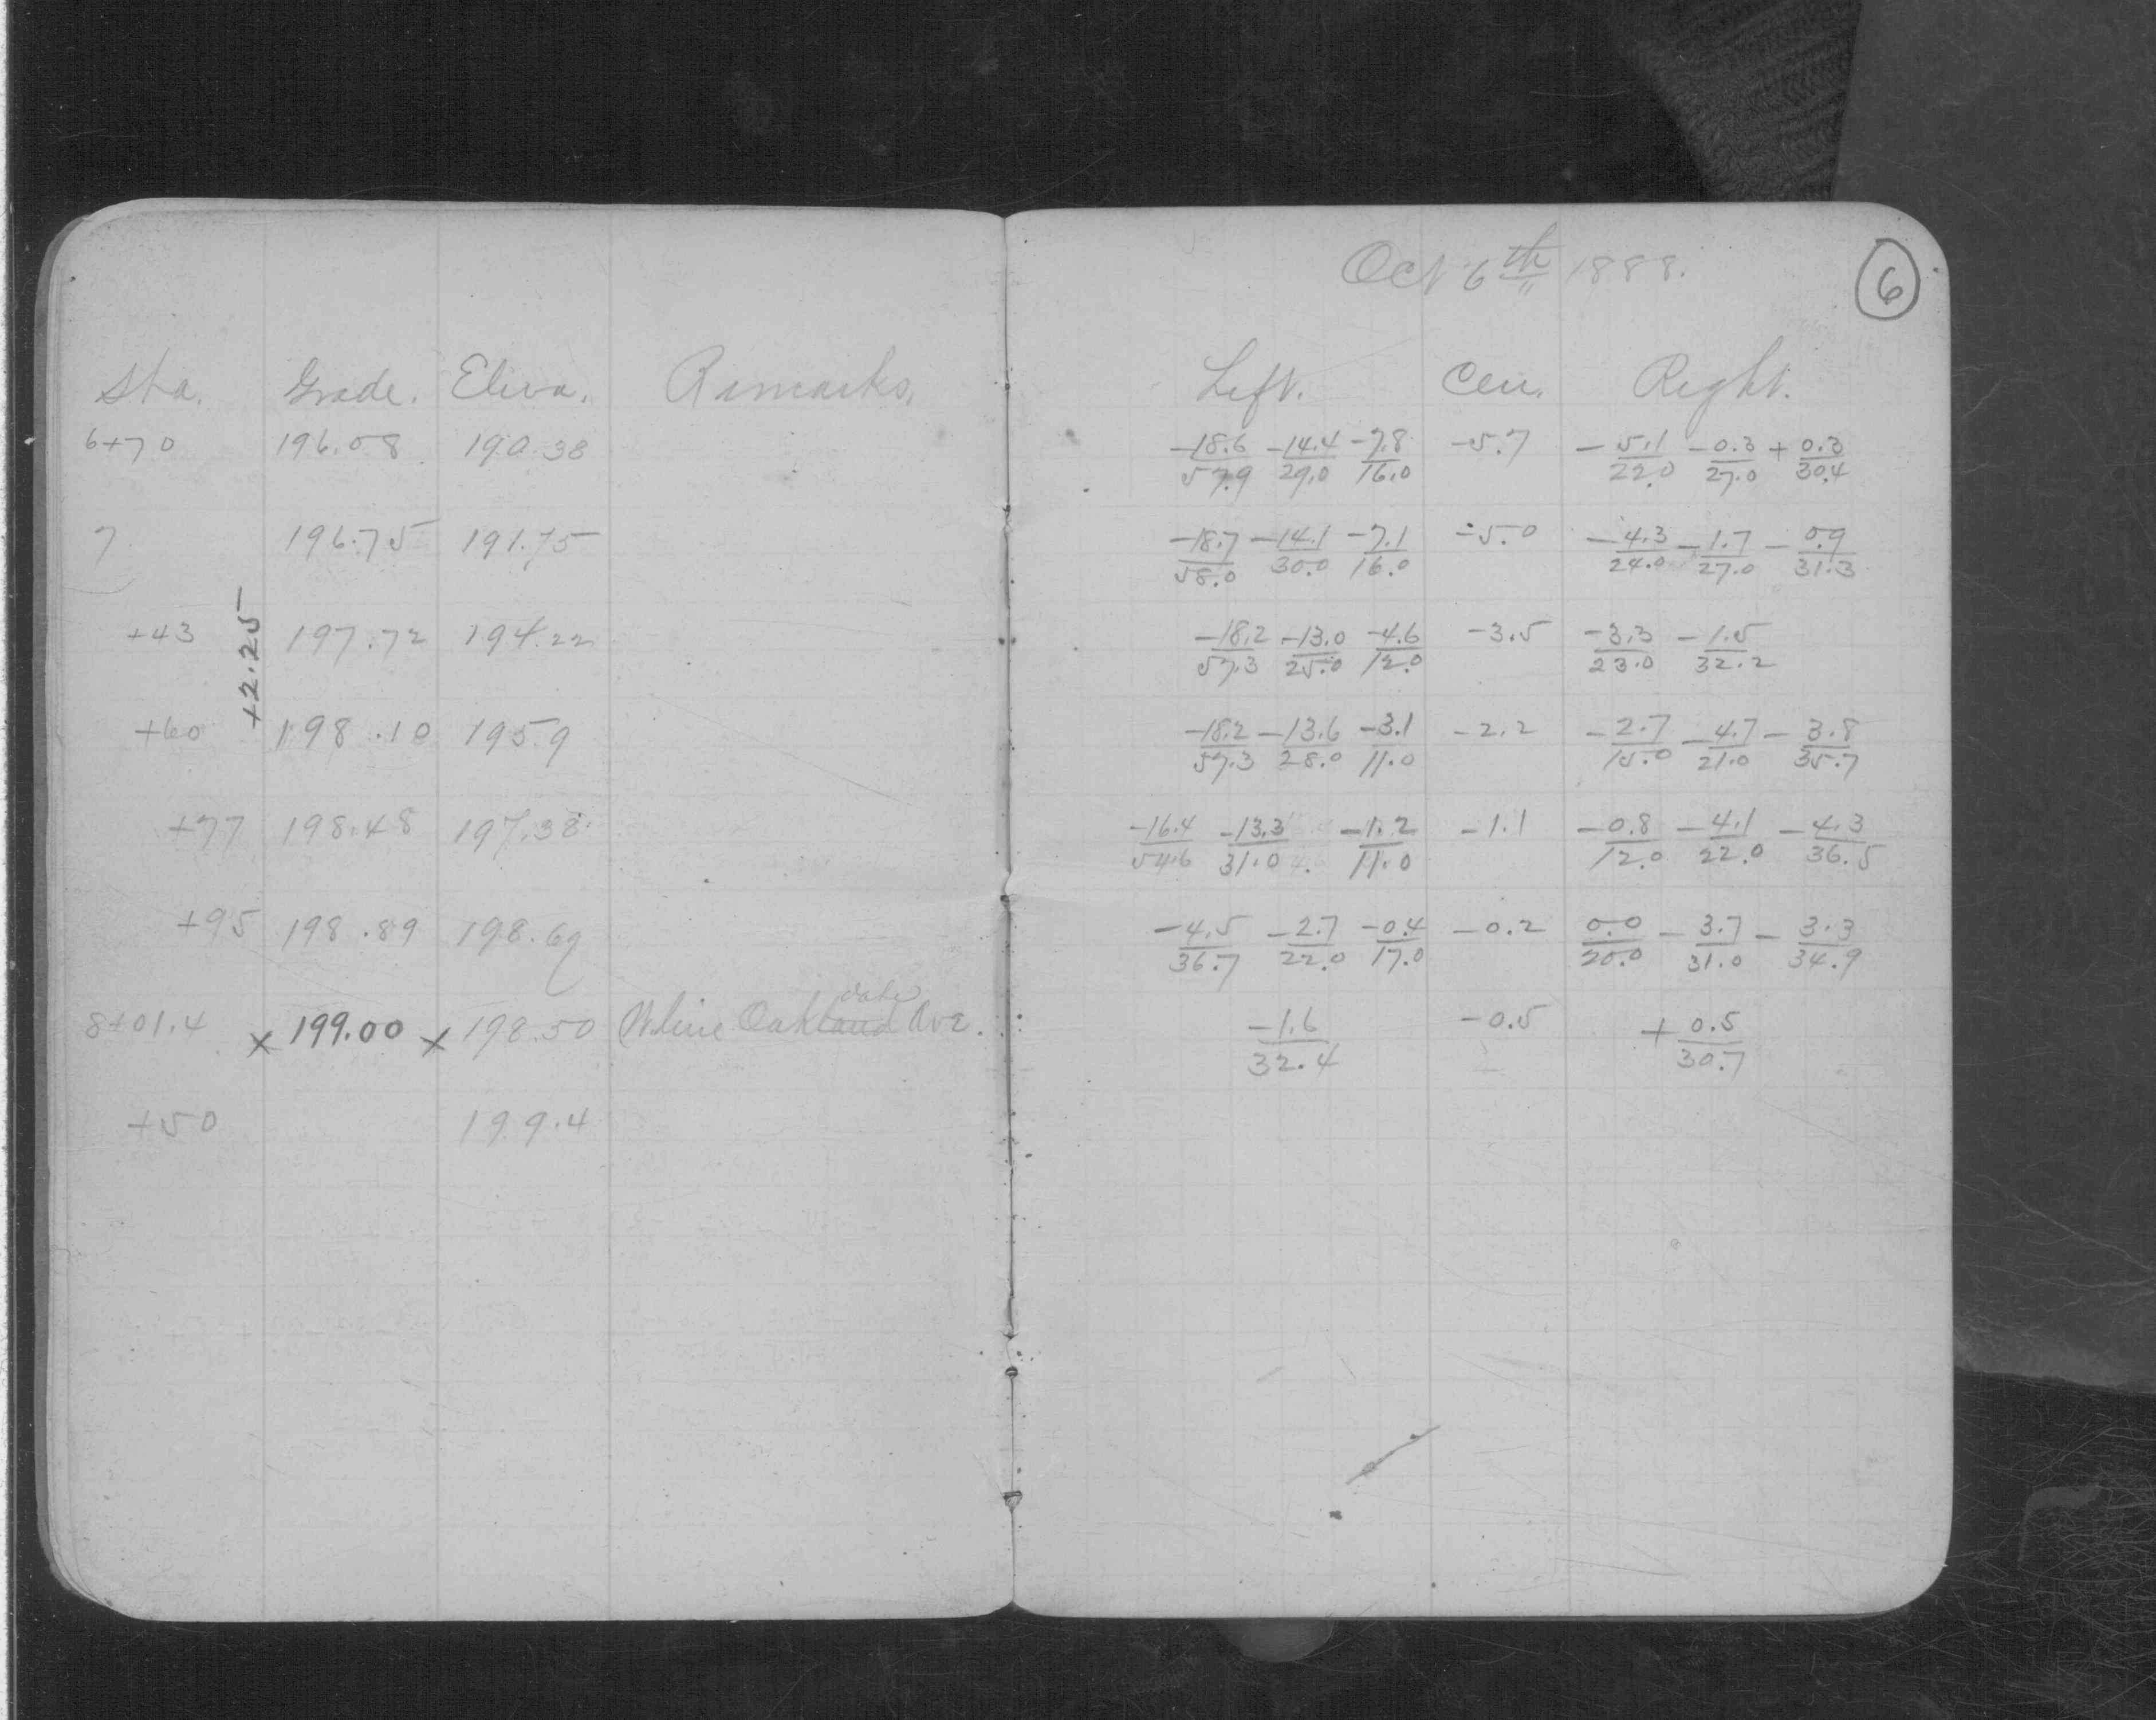 Oct 6th 1888.
6
Sta. Grade. Eleva. Remarks. Left. Cen. Right.
6+70 196.08 190.38 -18.6/57.9 -14.4/29.0 -7.8/16.0 -5.7 -5.1/22.0 -0.3/27.0 +0.3/30.4
7 196.75 191.75 -18.7/58.0 -14.1/30.0 -7.1/16.0 -5.0 -4.3/24.0 -1.7/27.0 -0.9/31.3
+2.25
+43 197.72 194.22 -18.2/57.3 -13.0/25.0 -4.6/12.0 -3.5 -3.3/23.0 -1.5/32.2
+60 198.10 195.9 -18.2/57.3 -13.6/28.0 -3.1/11.0 -2.2 -2.7/15.0 -4.7/21.0 -3.8/35.7
+77 198.48 197.38 -16.4/54.6 -13.3/31.0 -1.2/11.0 -1.1 -0.8/12.0 -4.1/22.0 -4.3/36.5
+95 198.89 198.69 -4.5/36.7 -2.7/22.0 -0.4/17.0 -0.2 0.0/20.0 -3.7/31.0 -3.3/34.9
dale
8+01.4 x 199.00 x 198.50 W. line Oakland Ave. -1.6/32.4 -0.5 +0.5/30.7
+50 199.4